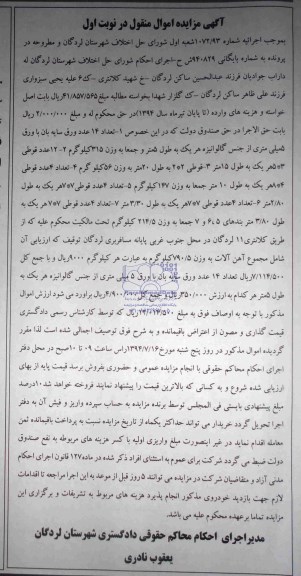 آگهی مزایده اموال منقول در نوبت اول
بموجب اجرائیه شماره ۱۰۷۲/۹۳شعبه اول شورای حل اختلاف شهرستان لردگان و مطروحه در
پرونده به شماره بایگانی ۹۴۰۸۲۹ش ح-اجرای احکام شورای حق اختلاف شهرستان لردگان له
داراب جوادیان فرزند عبدالحسین ساکن لردگان -خ شهید کلانتری -ک۶ علیه یحیی سبزواری
فرزند علی ظاهر ساکن لردگان -ک گلزار شهدا بخواسته مطالبه مبلغ۴۱/۸۵۷/۵۶۵ریال بابت اصل
خواسته و هزینه های وارده (تا پایان تیرماه سال ۱۳۹۴)در حق محکوم له و مبلغ ۲/۰۰۰/۰۰۰ ریال
بابت حق الاجرا در حق صندوق دولت که در این خصوص ۱-تعداد ۱۴ عدد ورق سایه بان با ورق
۵ میلی متری از جنس گالوانیزه هر یک به طول ۵متر و جمعا به وزن ۳۱۵کیلو گرم ۲-۱۲عدد قوطی
۳*۵هر یک به طول ۱۵متر ۳-قوطی ۲*۲ به طول ۲۰متر به وزن ۵۶کیلو گرم ۴-۴عدد قوطی
۴*۸هر یک به طول ۱۰ متر جمعا به وزن ۱۴۷ کیلو گرم ۵-تعداد ۴عدد قوطی ۷*۷هر یک به طول
۲/۸۰متر ۶-تعداد ۴عدد قوطی ۷*۷هر یک به طول ۳/۳۰ متر ۷-تعداد ۴عدد قوطی ۷*۷هر یک به
طول ۳/۸۰ متر بندهای ۵ و۶ و ۷ جمعا به وزن ۲۱۴/۵ کیلو گرم تحت مالکیت محکوم علیه که از
طریق کلانتری۱۱ لردگان در محل جنوب غربی پایانه مسافربری لردگان توقیف که ارزیابی آن
شامل مجموع آهن آلات به وزن ۷۹۰/۵کیلو گرم به عبارت هر کیلو گرم ۹۰۰۰ریال و با جمع کل
۷/۱۱۴/۵۰۰ریال تعداد ۱۴ عدد ورق سایه بان با ورق ۵ میلی متری از جنس گالوانیزه هر یک به
طول ۵متر هر کدام به ارزش ۳۵۰/۰۰۰ریال و جمع کل ۴/۹۰۰/۰۰۰ریال براورد می شود ارزش اموال
مذکور با توجه به اوصاف فوق به مبلغ ریال که توسط کارشناس رسمی دادگستری
قیمت گذاری و مصون از اعتراض باقیمانده و به شرح فوق توصیف اجمالی شده است لذا مقرر
گردیده اموال مذکور در روز پنج شنبه مورخ۱۳۹۴/۷/۱۶راس ساعت ۰۹ تا ۱۰صبح در محل دفتر
اجرای احکام محاکم حقوقی با انجام مزایده عمومی و حضوری بفروش برسد قیمت پایه از بهای
ارزیابی شده شروع و به کسانی که بالاترین قیمت را پیشنهاد نمایند فروخته خواهد شد ۱۰درصد
مبلغ پیشنهادی بایستی فی المجلس توسط برنده مزایده به حساب سپرده واریز و فیش آن به دفتر
اجرا تحویل گردد خریدار می تواند حداکثر یکماه از تاریخ مزایده نسبت به پرداخت باقیمانده ثمن
معامله اقدام نماید در غیر اینصورت مبلغ واریزی اولیه با کسر هزینه های مربوطه به نفع صندوق
دولت ضبط می گردد شرکت برای عموم به استثنای افراد ذکر شده در ماده۱۲۷ قانون اجرای احکام
مدنی آزاد و متقاضیان شرکت در مزایده می توانند ۵ روز قبل از موعد به این اجرا مراجعه تا اقدامات
لازم جهت بازدید خودروی مذکور انجام پذیرد هزینه های مربوط به تشریفات و برگزاری این
مزایده تماما برعهده محکوم علیه می باشد.
مدیراجرای احکام محاکم حقوقی دادگستری شهرستان لردگان
یعقوب نادری